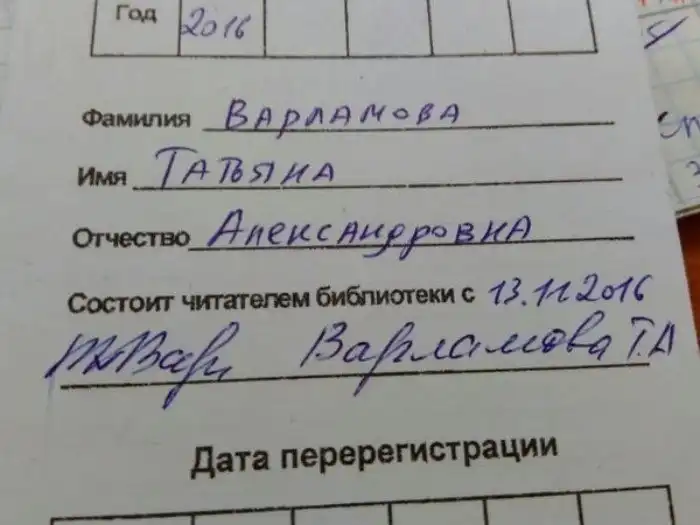 Год 2016
Фамилия Варламова
Имя Татьяна
Отчество Александровна
Состоит читателем библиотеки с 13.11.2016
Варламова Т.А
Дата перерегистрации